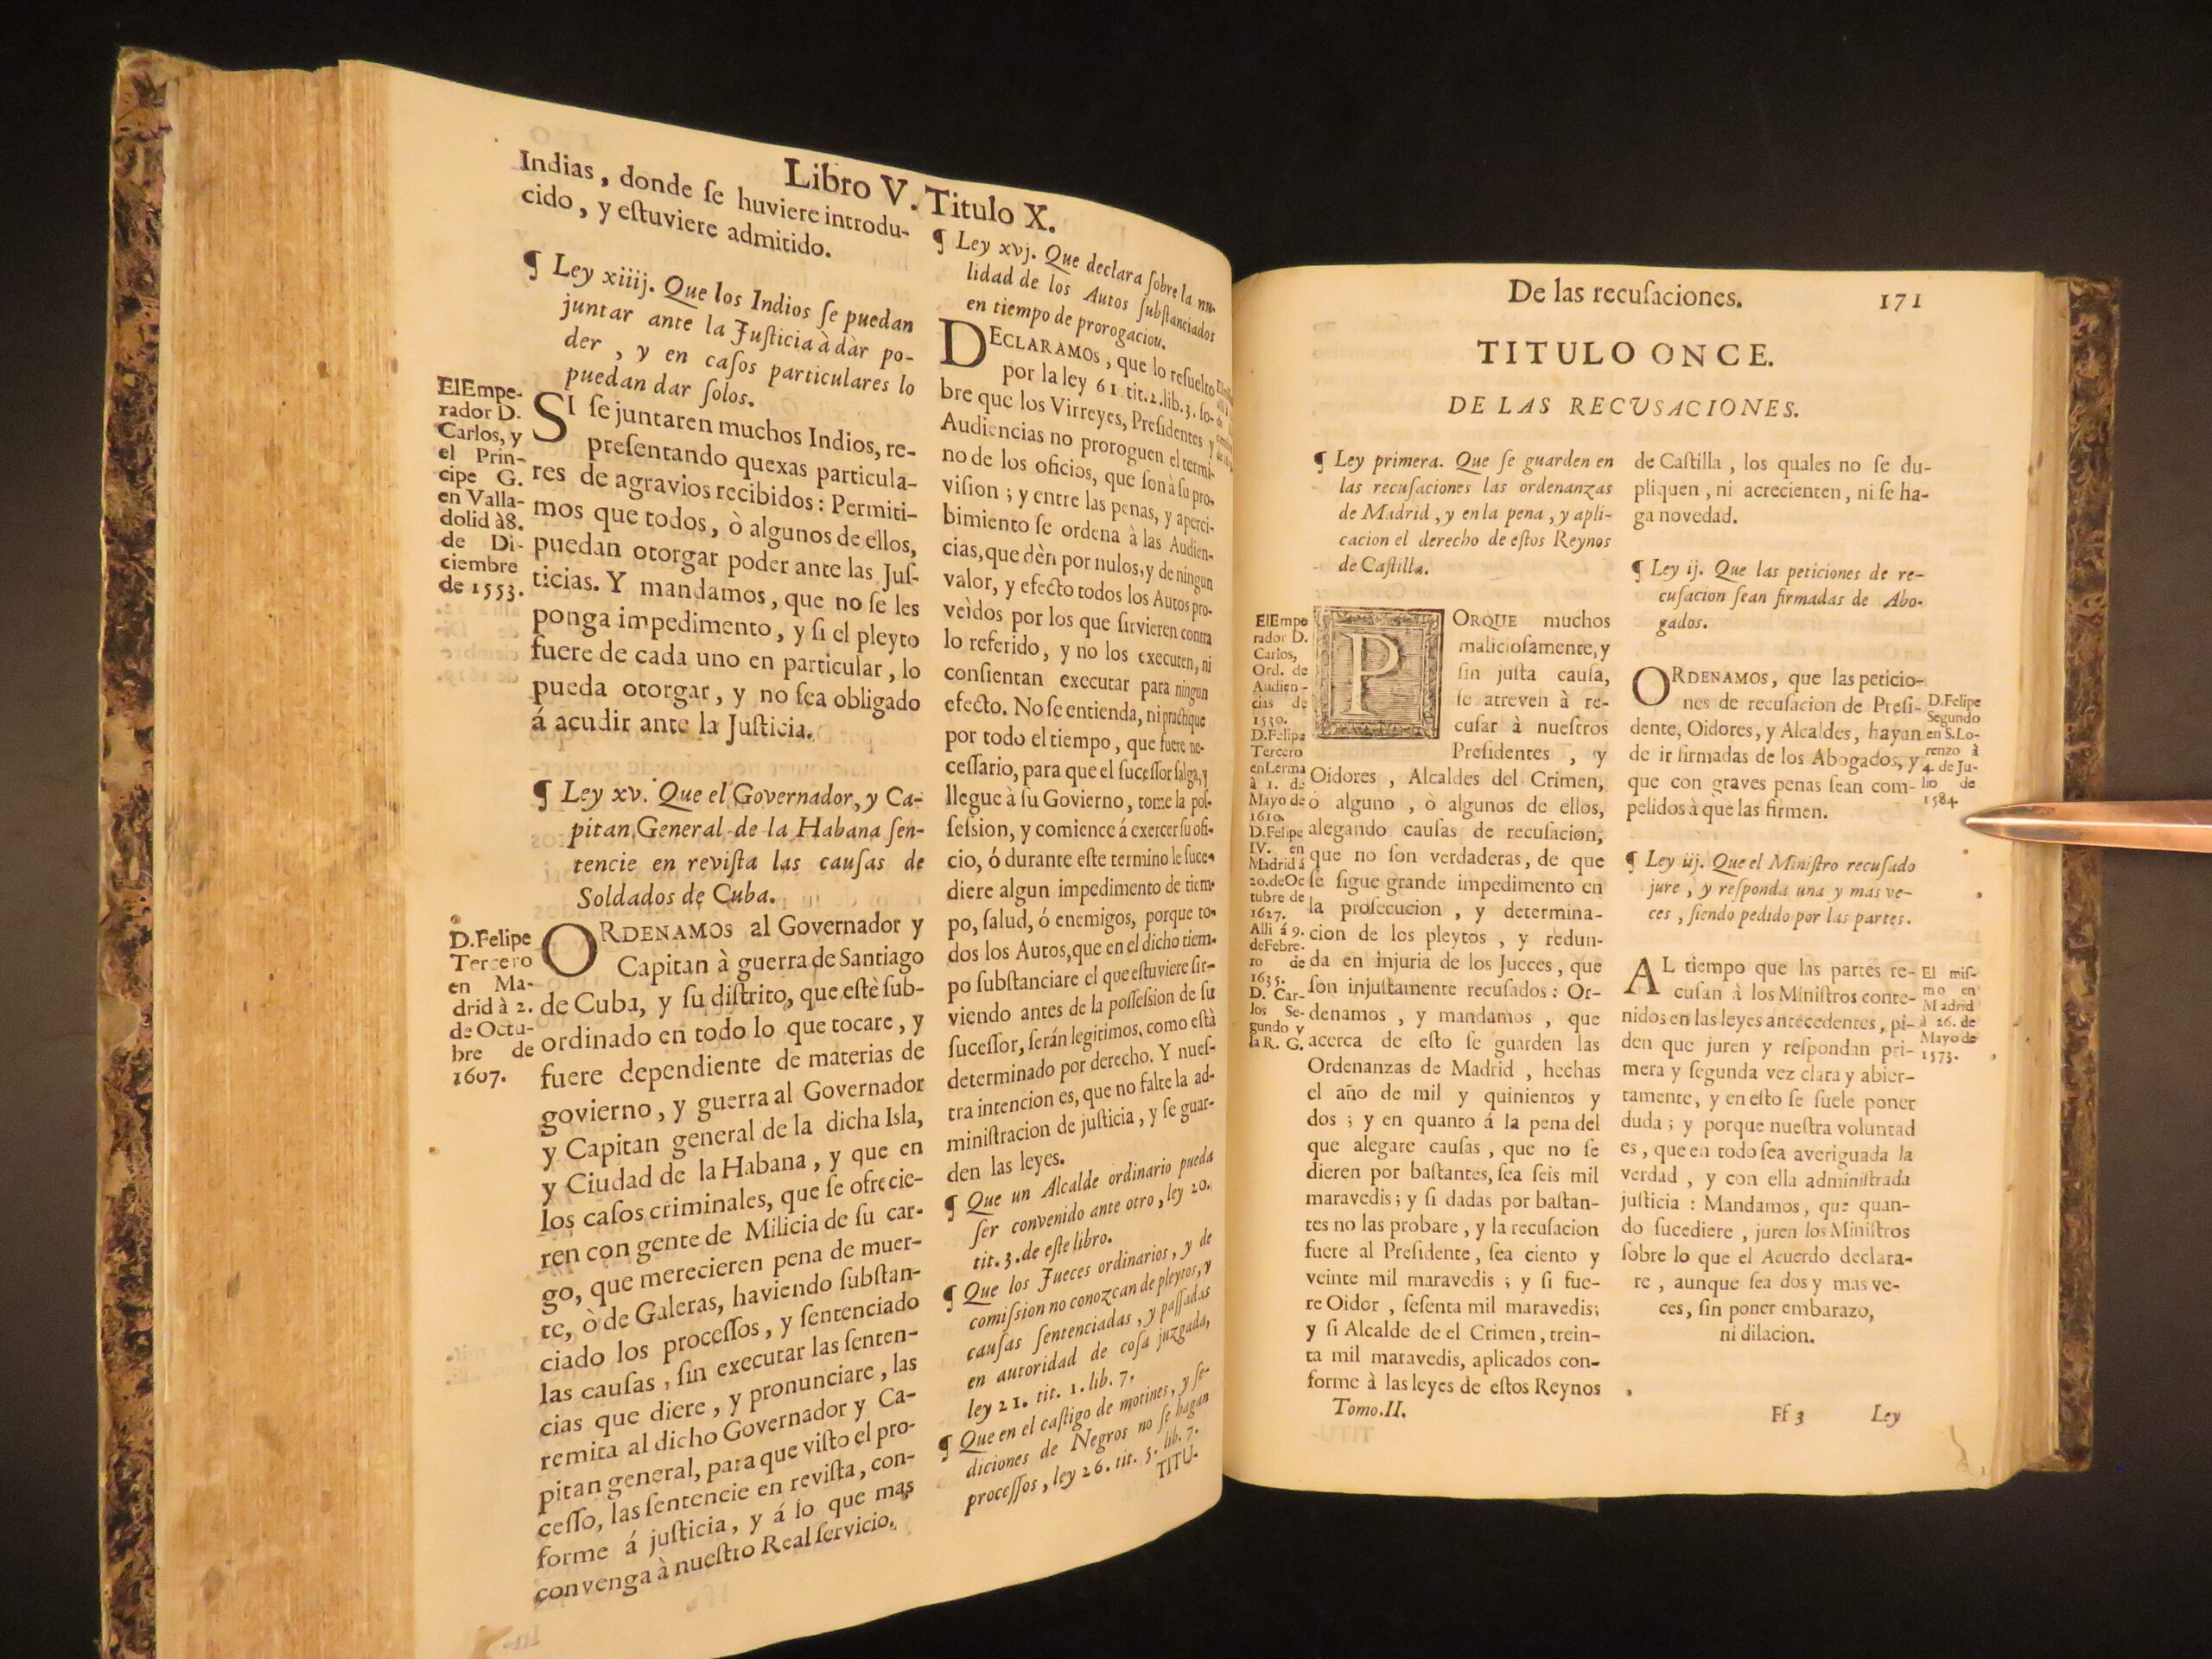 Libro V. Titulo X.
Indias, donde ſe huviere introdu-
cido, y eſtuviere admitido.
¶ Ley xiiij. Que los Indios ſe puedan
juntar ante la Juſticia à dàr po-
der, y en caſos particulares lo
puedan dar ſolos.
ElEmpe-
rador D.
Carlos, y
el Prin-
cipe G.
en Valla-
dolid à 8.
de Di-
ciembre
de 1553.
SI ſe juntaren muchos Indios, re-
preſentando quexas particula-
res de agravios recibidos: Permiti-
mos que todos, ò algunos de ellos,
puedan otorgar poder ante las Juſ-
ticias. Y mandamos, que no ſe les
ponga impedimento, y ſi el pleyto
fuere de cada uno en particular, lo
pueda otorgar, y no ſea obligado
á acudir ante la Juſticia.
¶ Ley xv. Que el Governador, y Ca-
pitan General de la Habana ſen-
tencie en reviſta las cauſas de
Soldados de Cuba.
D.Felipe
Tercero
en Ma-
drid à 2.
de Octu-
bre de
1607.
ORDENAMOS al Governador y
Capitan à guerra de Santiago
de Cuba, y ſu diſtrito, que eſtè ſub-
ordinado en todo lo que tocare, y
fuere dependiente de materias de
govierno, y guerra al Governador
y Capitan general de la dicha Isla,
y Ciudad de la Habana, y que en
los caſos criminales, que ſe ofrecie-
ren con gente de Milicia de ſu car-
go, que merecieren pena de muer-
te, ò de Galeras, haviendo ſubſtan-
ciado los proceſſos, y ſentenciado
las cauſas, ſin executar las ſenten-
cias que diere, y pronunciare, las
remita al dicho Governador y Ca-
pitan general, para que viſto el pro-
ceſſo, las ſentencie en reviſta, con-
forme á juſticia, y á lo que mas
convenga à nueſtro Real ſervicio.
¶ Ley xvj. Que declara ſobre la nu-
lidad de los Autos ſubſtanciados
en tiempo de prorogaciou.
DECLARAMOS, que lo reſuelto
por la ley 61. tit. 2. lib. 3. ſo-
bre que los Virreyes, Preſidentes y
Audiencias no proroguen el termi-
no de los oficios, que ſon à ſu pro-
viſion; y entre las penas, y aperci-
bimiento ſe ordena à las Audien-
cias, que dèn por nulos, y de ningun
valor, y efecto todos los Autos pro-
veìdos por los que ſirvieren contra
lo referido, y no los executen, ni
conſientan executar para ningun
efecto. No ſe entienda, ni practique
por todo el tiempo, que fuere ne-
ceſſario, para que el ſuceſſor ſalga, y
llegue à ſu Govierno, tome la poſ-
ſeſsion, y comience á exercer ſu ofi-
cio, ó durante eſte termino le ſuce-
diere algun impedimento de tiem-
po, ſalud, ó enemigos, porque to-
dos los Autos, que en el dicho tiem-
po ſubſtanciare el que eſtuviere ſir-
viendo antes de la poſſeſsion de ſu
ſuceſſor, ſerán legitimos, como eſtà
determinado por derecho. Y nueſ-
tra intencion es, que no falte la ad-
miniſtracion de juſticia, y ſe guar-
den las leyes.
¶ Que un Alcalde ordinario pueda
ſer convenido ante otro, ley 20.
tit. 3. de eſte libro.
¶ Que los Jueces ordinarios, y de
comiſsion no conozcan de pleytos, y
cauſas ſentenciadas, y paſſadas
en autoridad de coſa juzgada,
ley 21. tit. 1. lib. 7.
¶ Que en el caſtigo de motines, y ſe-
diciones de Negros no ſe hagan
proceſſos, ley 26. tit. 5. lib. 7.
TITU-
De las recuſaciones. 171
TITULO ONCE.
DE LAS RECUSACIONES.
¶ Ley primera. Que ſe guarden en
las recuſaciones las ordenanzas
de Madrid, y en la pena, y apli-
cacion el derecho de eſtos Reynos
de Caſtilla.
ElEmpe
rador D.
Carlos,
Ord. de
Audien-
cias de
1530.
D.Felipe
Tercero
en Lerma
à 1. de
Mayo de
1610.
D.Felipe
IV. en
Madrid á
20. de Oc
tubre de
1627.
Alli á 9.
de Febre-
ro de
1635.
D. Car-
los Se-
gundo y
la R. G.
PORQUE muchos
malicioſamente, y
ſin juſta cauſa,
ſe atreven à re-
cuſar à nueſtros
Preſidentes, y
Oidores, Alcaldes del Crimen,
ò alguno, ò algunos de ellos,
alegando cauſas de recuſacion,
que no ſon verdaderas, de que
ſe ſigue grande impedimento en
la proſecucion, y determina-
cion de los pleytos, y redun-
da en injuria de los Jueces, que
ſon injuſtamente recuſados: Or-
denamos, y mandamos, que
acerca de eſto ſe guarden las
Ordenanzas de Madrid, hechas
el año de mil y quinientos y
dos; y en quanto á la pena del
que alegare cauſas, que no ſe
dieren por baſtantes, ſea ſeis mil
maravedis; y ſi dadas por baſtan-
tes no las probare, y la recuſacion
fuere al Preſidente, ſea ciento y
veinte mil maravedis; y ſi fue-
re Oidor, ſeſenta mil maravedis;
y ſi Alcalde de el Crimen, trein-
ta mil maravedis, aplicados con-
forme à las leyes de eſtos Reynos
Tomo.II.
de Caſtilla, los quales no ſe du-
pliquen, ni acrecienten, ni ſe ha-
ga novedad.
¶ Ley ij. Que las peticiones de re-
cuſacion ſean firmadas de Abo-
gados.
ORDENAMOS, que las peticio-
nes de recuſacion de Preſi-
dente, Oidores, y Alcaldes, hayan
de ir firmadas de los Abogados, y
que con graves penas ſean com-
pelidos à que las firmen.
D.Felipe
Segundo
en S.Lo-
renzo à
4. de Ju-
lio de
1584.
¶ Ley iij. Que el Miniſtro recuſado
jure, y reſponda una y mas ve-
ces, ſiendo pedido por las partes.
AL tiempo que las partes re-
cuſan à los Miniſtros conte-
nidos en las leyes antecedentes, pi-
den que juren y reſpondan pri-
mera y ſegunda vez clara y abier-
tamente, y en eſto ſe ſuele poner
duda; y porque nueſtra voluntad
es, que en todo ſea averiguada la
verdad, y con ella adminiſtrada
juſticia: Mandamos, que quan-
do ſucediere, juren los Miniſtros
ſobre lo que el Acuerdo declara-
re, aunque ſea dos y mas ve-
ces, ſin poner embarazo,
ni dilacion.
El miſ-
mo en
Madrid
à 26. de
Mayo de
1573.
Ff 3 Ley